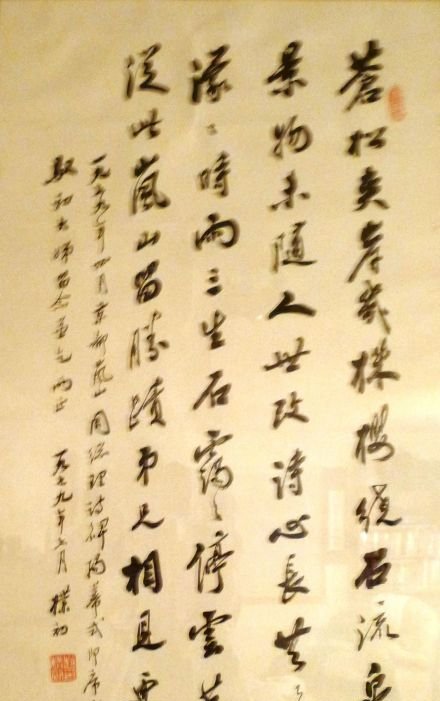 蒼松夾岸幾株櫻繞石流泉
景物未隨人世改詩心長共
濛々時雨三生石靄々停雲
從此嵐山留勝蹟弟兄相見更
一九七九年四月京都嵐山周總理詩碑揭幕式即席
大師留念並乞兩正 一九七九年六月 樸初